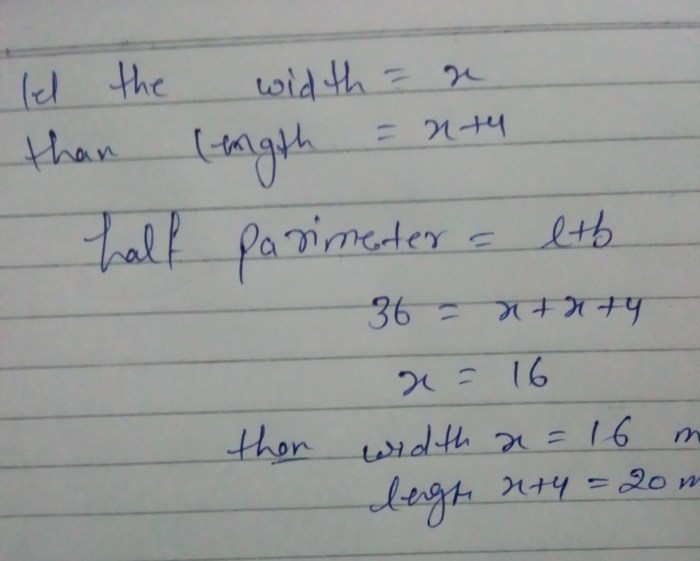 let the width = x
than length = x+4
half parimeter = l+b
36 = x+x+4
x = 16
then width x = 16 m
lengh x+4 = 20 m